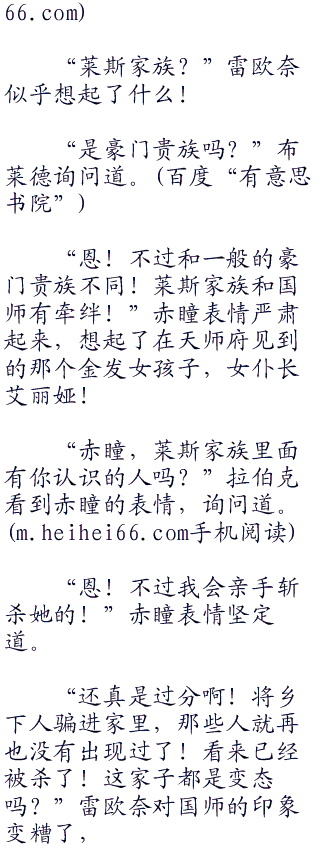 66.com)
“莱斯家族？”雷欧奈
似乎想起了什么！
“是豪门贵族吗？”布
莱德询问道。(百度“有意思
书院”)
“恩！不过和一般的豪
门贵族不同！莱斯家族和国
师有牵绊！”赤瞳表情严肃
起来，想起了在天师府见到
的那个金发女孩子，女仆长
艾丽娅！
“赤瞳，莱斯家族里面
有你认识的人吗？”拉伯克
看到赤瞳的表情，询问道。
(m.heihei66.com手机阅读)
“恩！不过我会亲手斩
杀她的！”赤瞳表情坚定
道。
“还真是过分啊！将乡
下人骗进家里，那些人就再
也没有出现过了！看来已经
被杀了！这家子都是变态
吗？”雷欧奈对国师的印象
变糟了，